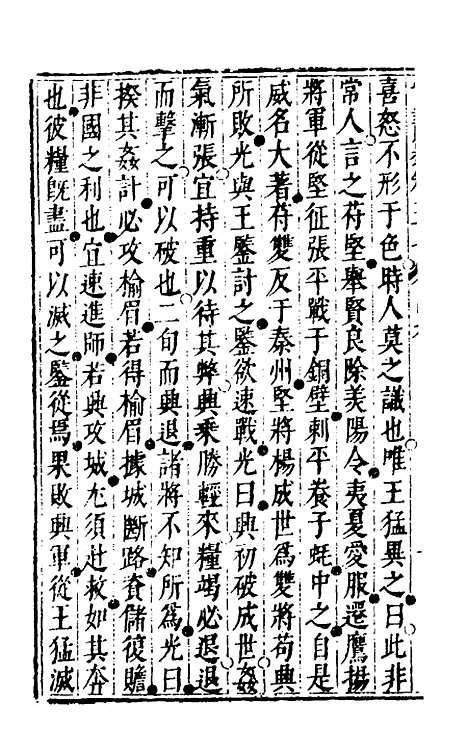 喜怒不形于色時人莫之識也唯王猛異之曰此非
常人言之苻堅舉賢良除美陽令夷夏愛服遷鷹揚
將軍從堅征張平戰于銅壁刺平養子蚝中之自是
威名大著苻雙反于秦州堅將楊成世爲雙將苟興
所敗光與王鑒討之鑒欲速戰光曰興初破成世姦
氣漸張宜持重以待其弊興乘勝輕來糧竭必退退
而擊之可以破也二旬而興退諸將不知所爲光曰
揆其姦計必攻榆眉若得榆眉據城斷路資儲復贍
非國之利也宜速進師若興攻城尤須赴救如其奔
也彼糧旣盡可以滅之鑒從焉果敗興軍從王猛滅